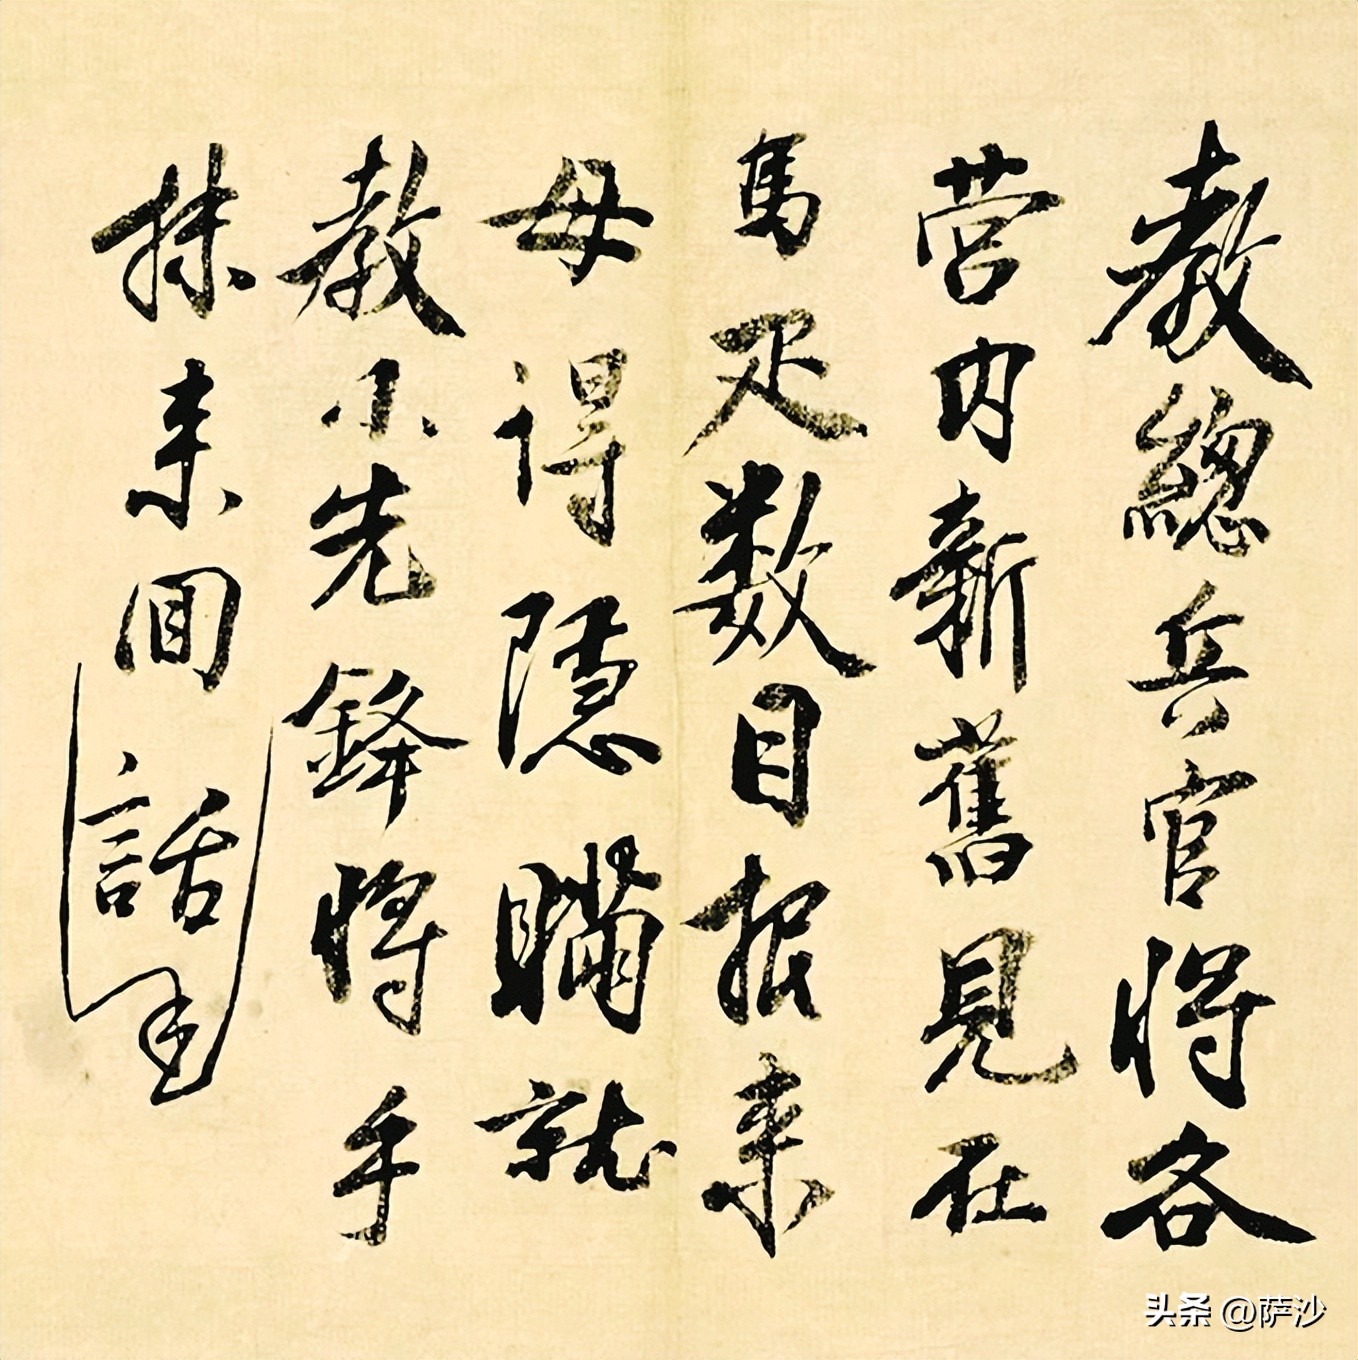 教總兵官將各
营内新舊見在
馬疋数目报来
毋得隱瞞就
教小先鋒將手
抹来囬話
头条 @萨沙